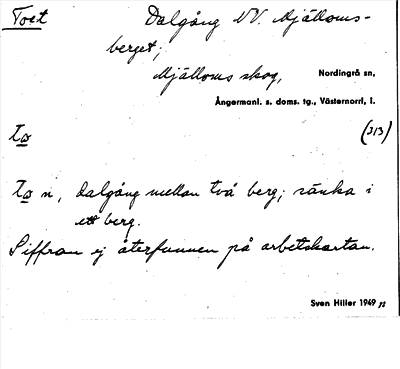 Toet Dalgång NV. Mjälloms-
berget;
Mjälloms skog, Nordingrå sn,
Ångermanl. s. doms. tg., Västernorrl, l.
tø (313)
tø n, dalgång mellan två berg; sänka i
ett berg.
Siffran ej återfunnen på arbetskartan.
Sven Hiller 1949